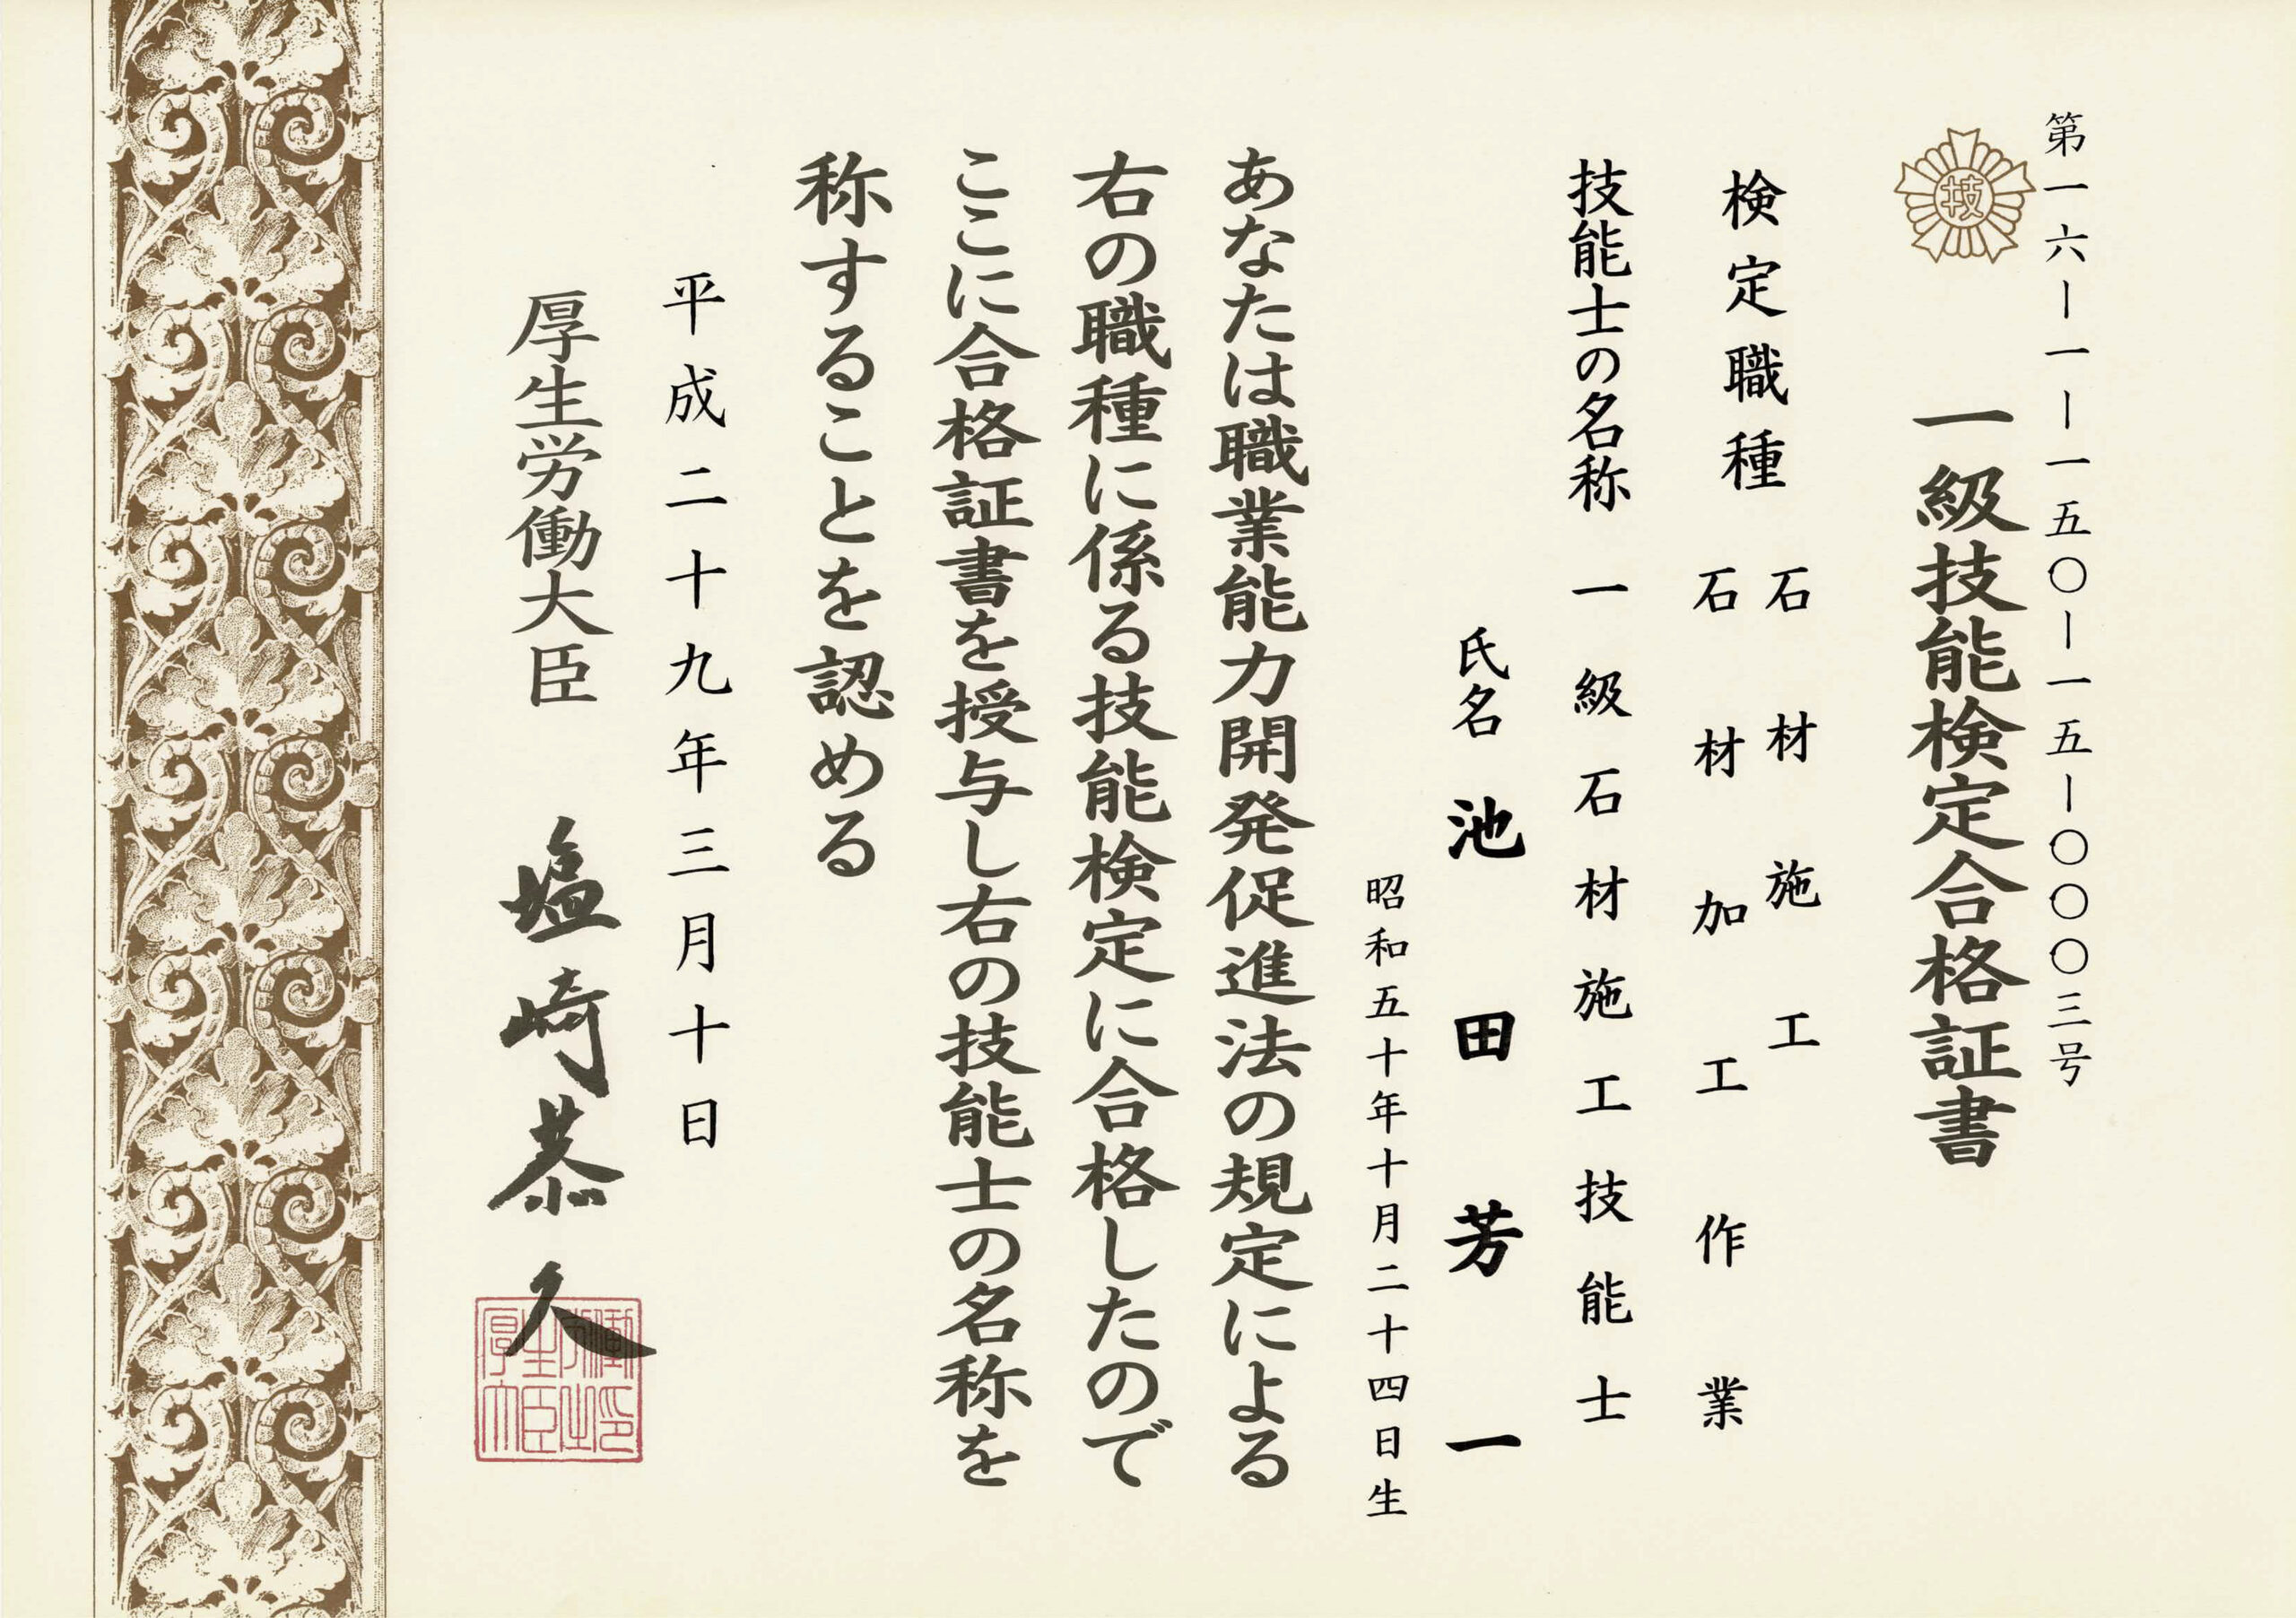 第一六―一―一五〇―一五―〇〇〇三号
技
一級技能検定合格証書
検定職種 石材施工
石材加工作業
技能士の名称 一級石材施工技能士
氏名 池田芳一
昭和五十年十月二十四日生
あなたは職業能力開発促進法の規定による
右の職種に係る技能検定に合格したので
ここに合格証書を授与し右の技能士の名称を
称することを認める
平成二十九年三月十日
厚生労働大臣 塩崎恭久
厚生労働大臣之印